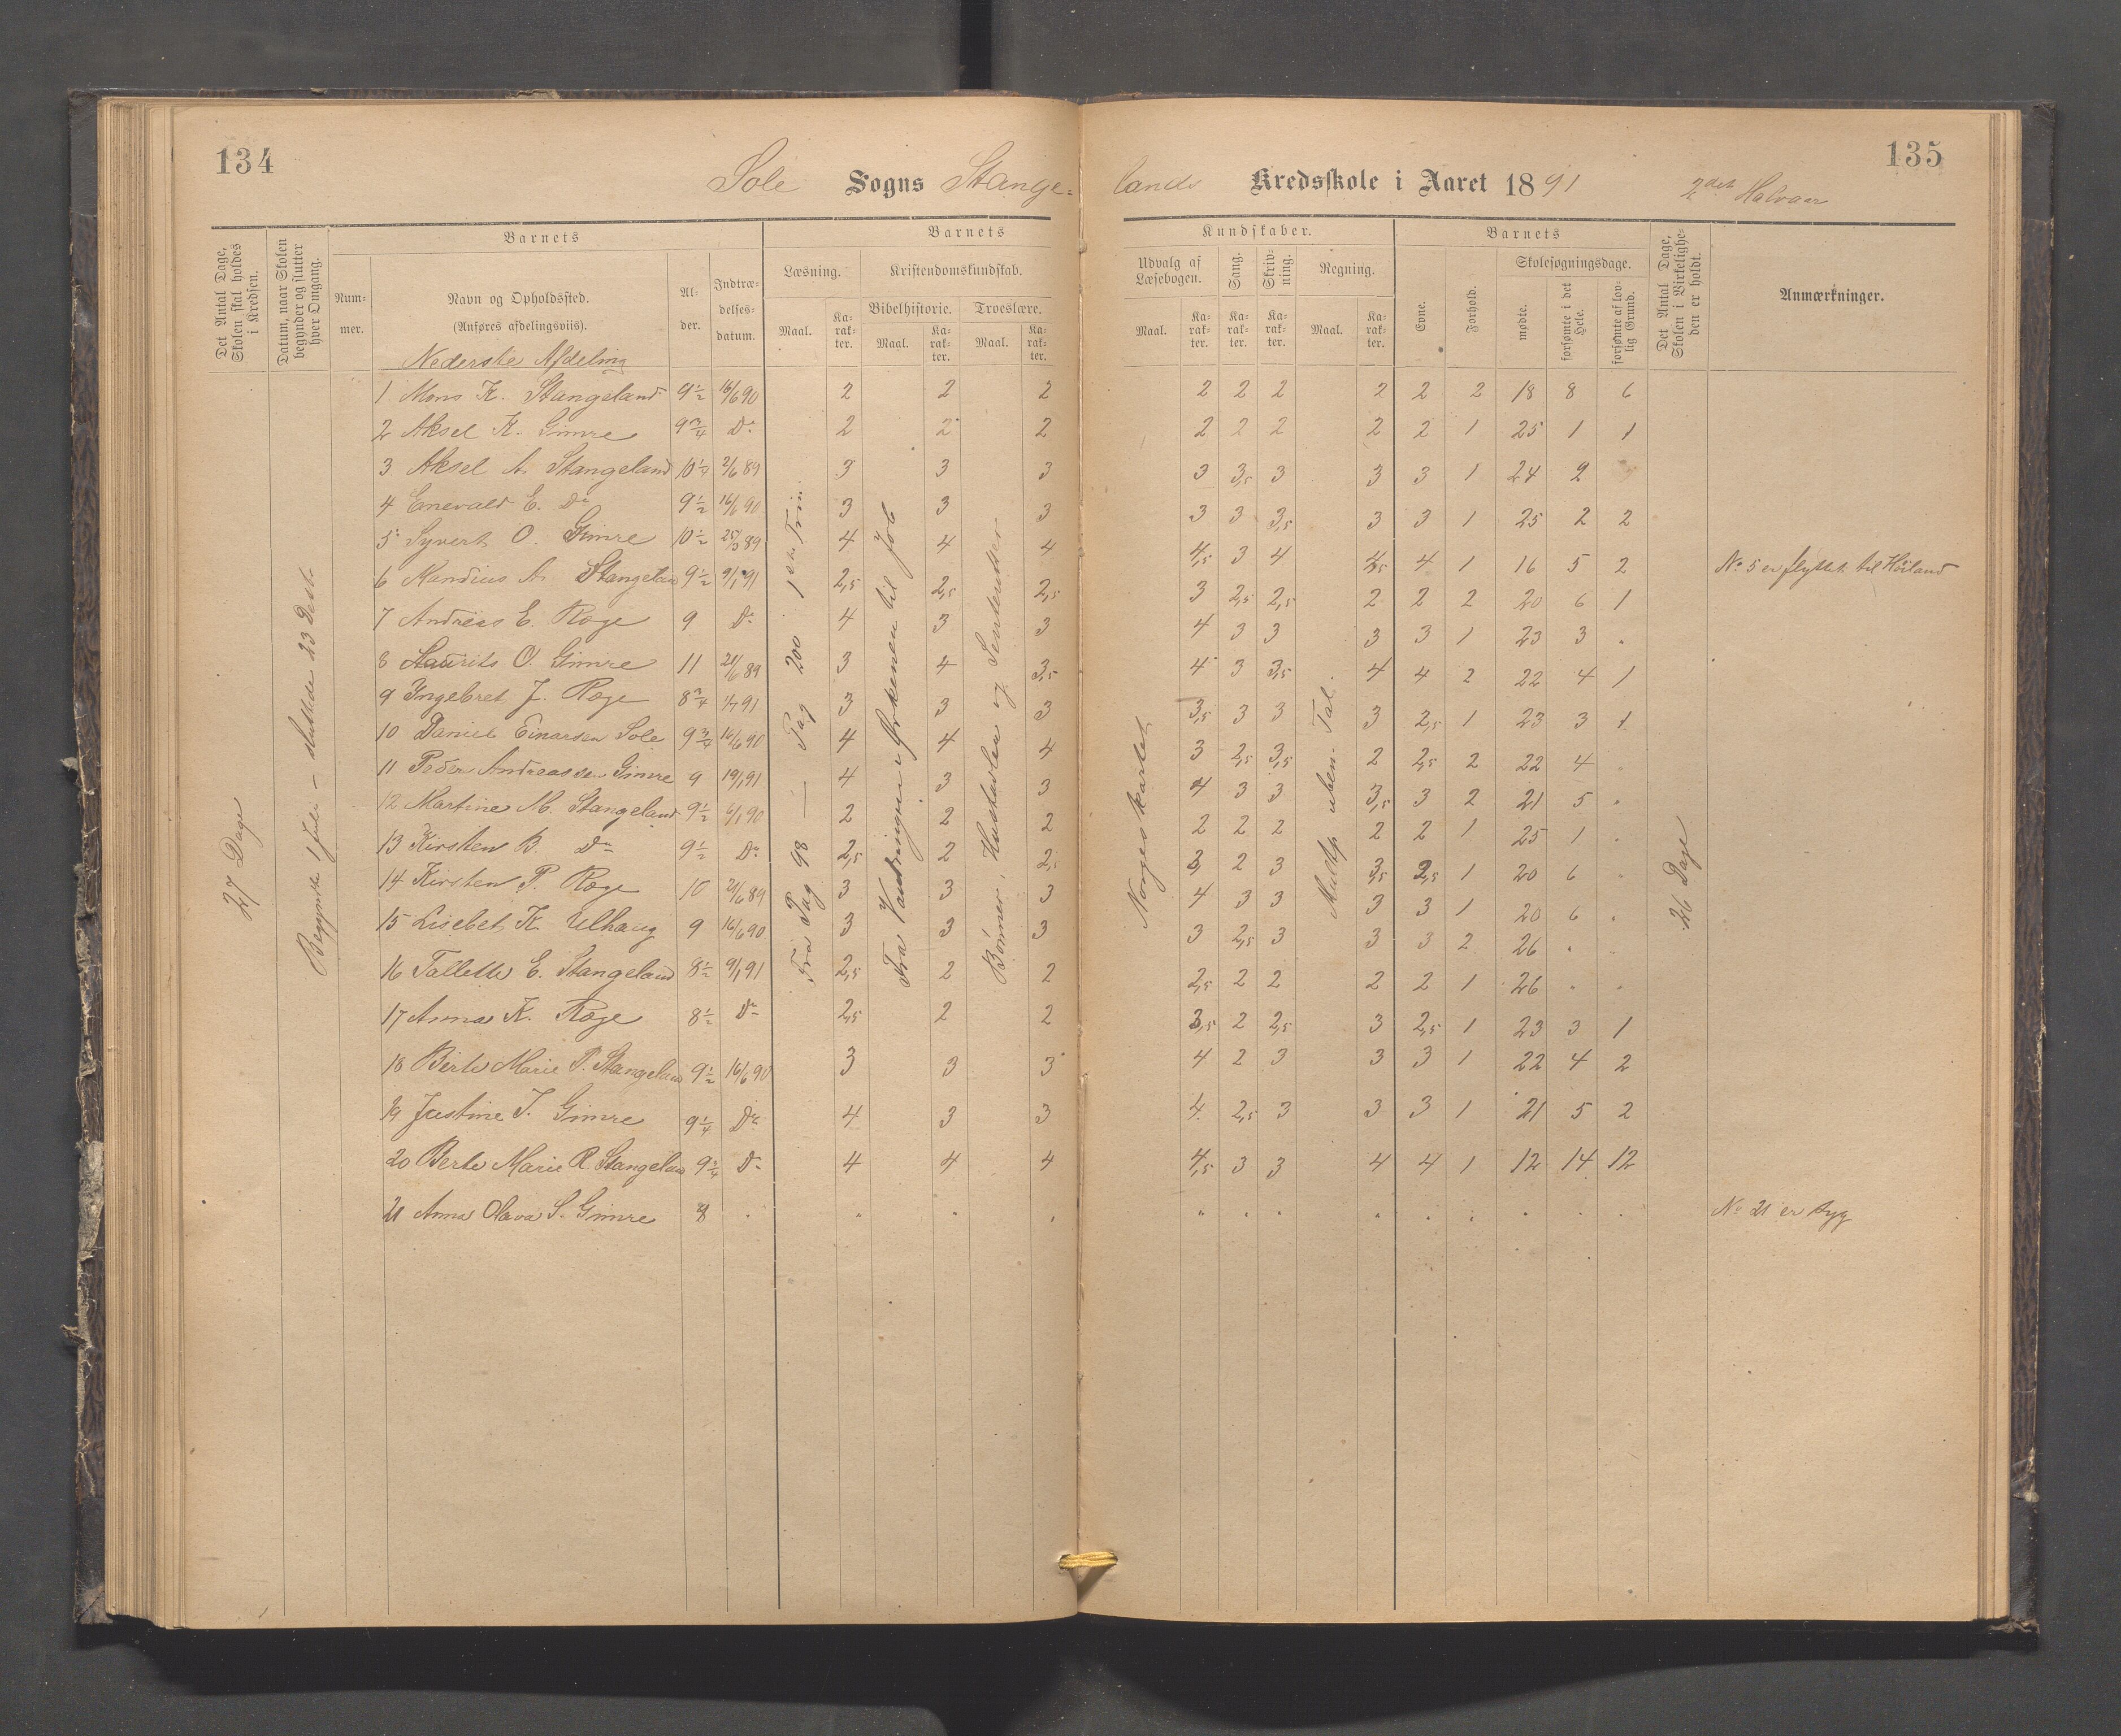 134
135
Sole Sogns Stange= lands Kredsskole i Aaret 1891 2det Halvaar
Det Antal Dage, Skolen skal holdes i Kredsen.
Datum, naar Skolen begynder og slutter hver Omgang.
Barnets
Nummer.
Navn og Opholdssted.
(Anføres afdelingsviis).
Nederste Afdeling
Alder.
Indtrædelsesdatum.
Barnets Kundskaber.
Læsning.
Maal.
Karakter.
Kristendomskundskab.
Bibelhistorie.
Maal.
Karakter.
Troeslære.
Maal.
Karakter.
Udvalg af Læsebogen.
Maal.
Karakter.
Sang.
Karakter.
Skrivning.
Karakter.
Regning.
Maal.
Karakter.
Barnets
Evne.
Forhold.
Skolesøgningsdage.
mødte.
forsømte i det Hele.
forsømte af lovlig Grund.
Det Antal Dage, Skolen i Virkeligheden er holdt.
Anmærkninger.
27 Dage
Begyndte 1 Juli – sluttede 23 Desbr
Fra Pag 98 — Pag 200 1ste Trin
Fra Vandringen i Ørkenen til Job
Bønner, Hustavlen og Sentenser
Norgeskartet
Multp. uben. Tal.
26 Dage
1 Mons K. Stangeland 9½ 16/6 90 2 2 2 2 2 2 2 2 2 18 8 6
2 Aksel K. Gimre 9¾ Do 2 2 2 2 2 2 2 2 1 25 1 1
3 Aksel A. Stangeland 10¼ 2/6 89 3 3 3 3 3,5 3 3 3 1 24 2
4 Enevald E. Do 9½ 16/6 90 3 3 3 3 3 3,5 3 3 1 25 2 2
5 Syvert O. Gimre 10½ 25/3 89 4 4 4 4,5 3 4 4,5 4 1 16 5 2 No 5 er flyttet til Höiland
6 Nandius A. Stangeland 9½ 9/1 91 2,5 2,5 2,5 3 2,5 2,5 2 2 2 20 6 1
7 Andreas E. Røge 9 Do 4 3 3 4 3 3 3 3 1 23 3 "
8 Laurits O. Gimre 11 21/6 89 3 4 3,5 4 3 3,5 4 4 2 22 4 1
9 Ingebret J. Røge 8¾ 1/7 91 3 3 3 3,5 3 3 3 2,5 1 23 3 1
10 Daniel Einarsen Sole 9¾ 16/6 90 4 4 4 3 2,5 3,5 2 2,5 2 22 4 "
11 Peder Andreassen Gimre 9 19/1 91 4 3 3 4 3 3 3,5 3 2 21 5 "
12 Martine M. Stangeland 9½ 6/1 90 2 2 2 2 2 2 2 2 1 25 1 "
13 Kirsten B. Do 9½ Do 2,5 2 2,5 3 2 3 3,5 2,5 1 20 6 "
14 Kirsten P. Røge 10 21/6 89 3 3 3 4 3 3 3 3 1 20 6 "
15 Lisebet K. Ulhaug 9 16/6 90 3 3 3 3 2,5 3 3 3 2 26 " "
16 Tallette E. Stangeland 8½ 9/1 91 2,5 2 2 2,5 2 2 2 2 1 26 " "
17 Anna K. Røge 8½ Do 2,5 2 2 3,5 2 2,5 3 2,5 1 23 3 1
18 Berte Marie P. Stangeland 9½ 16/6 90 3 3 3 4 2 3 3 3 1 22 4 2
19 Justine T. Gimre 9¼ Do 4 3 3 4 2,5 3 3 3 1 21 5 2
20 Berte Marie R. Stangeland 9¾ Do 4 4 4 4,5 3 3 4 4 1 12 14 12
21 Anna Olava S. Gimre 8 " " " " " " " " " " " " " No 21 er syg